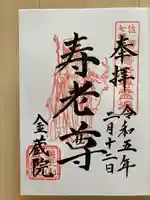 奉拝
令和五年
二月十二日
寿老尊
金蔵院